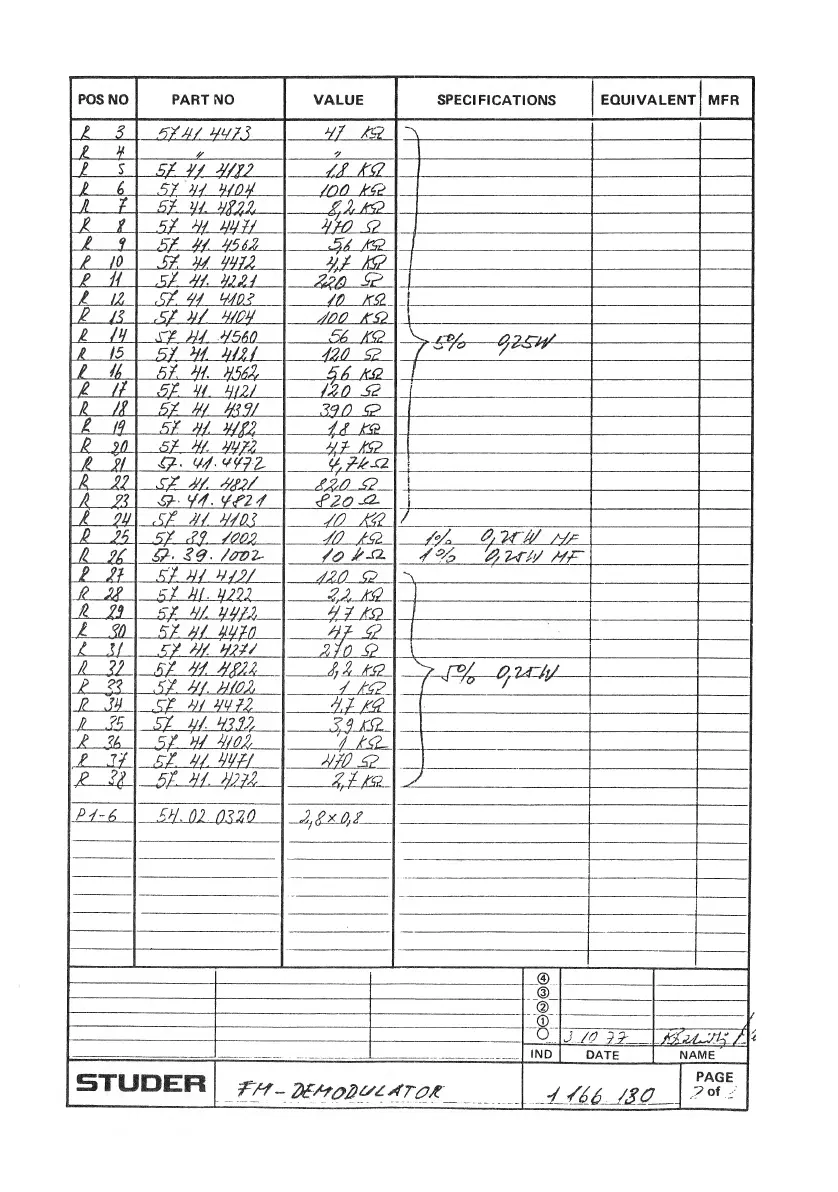 POS NO PART NO VALUE SPECIFICATIONS EQUIVALENT MFR
R 3 57 41 4473 47 KΩ
R 4 〃 〃
R 5 57 41 4182 1,8 KΩ
R 6 57 41 4104 100 KΩ
R 7 57 41. 4822 8,2 KΩ
R 8 57 41 4471 470 Ω
R 9 57 41. 4562 5,6 KΩ
R 10 57. 41. 4472 4,7 KΩ
R 11 57 41. 4221 220 Ω
R 12 57. 41 4103 10 KΩ
R 13 57 41 4104 100 KΩ
R 14 57 41 4560 56 KΩ 5% 0,25W
R 15 57 41. 4121 120 Ω
R 16 57. 41. 4562 5,6 KΩ
R 17 57. 41. 4121 120 Ω
R 18 57 41 4391 390 Ω
R 19 57 41. 4182 1,8 KΩ
R 20 57 41. 4472 4,7 KΩ
R 21 57. 41. 4472 4,7kΩ
R 22 57 41. 4821 820 Ω
R 23 57. 41. 4821 820 Ω
R 24 57 41 4103 10 KΩ
R 25 57 39 1002 10 KΩ 1% 0,25W MF
R 26 57. 39. 1002 10 kΩ 1% 0,25W MF
R 27 57 41 4121 120 Ω
R 28 57 41. 4222 2,2 KΩ
R 29 57. 41. 4472 4,7 KΩ
R 30 57 41 4470 47 Ω
R 31 57 41. 4271 270 Ω
R 32 57 41. 4822 8,2 KΩ 5% 0,25W
R 33 57 41. 4102 1 KΩ
R 34 57 41 4472 4,7 KΩ
R 35 57 41. 4392 3,9 KΩ
R 36 57. 41 4102 1 KΩ
R 37 57. 41. 4471 470 Ω
R 38 57. 41. 4272 2,7 KΩ
P1-6 54. 02 0320 2,8 x 0,8
④
③
②
①
○ 3 10 77
IND DATE NAME
STUDER FM-DEMODULATOR 1 166 130 PAGE
of